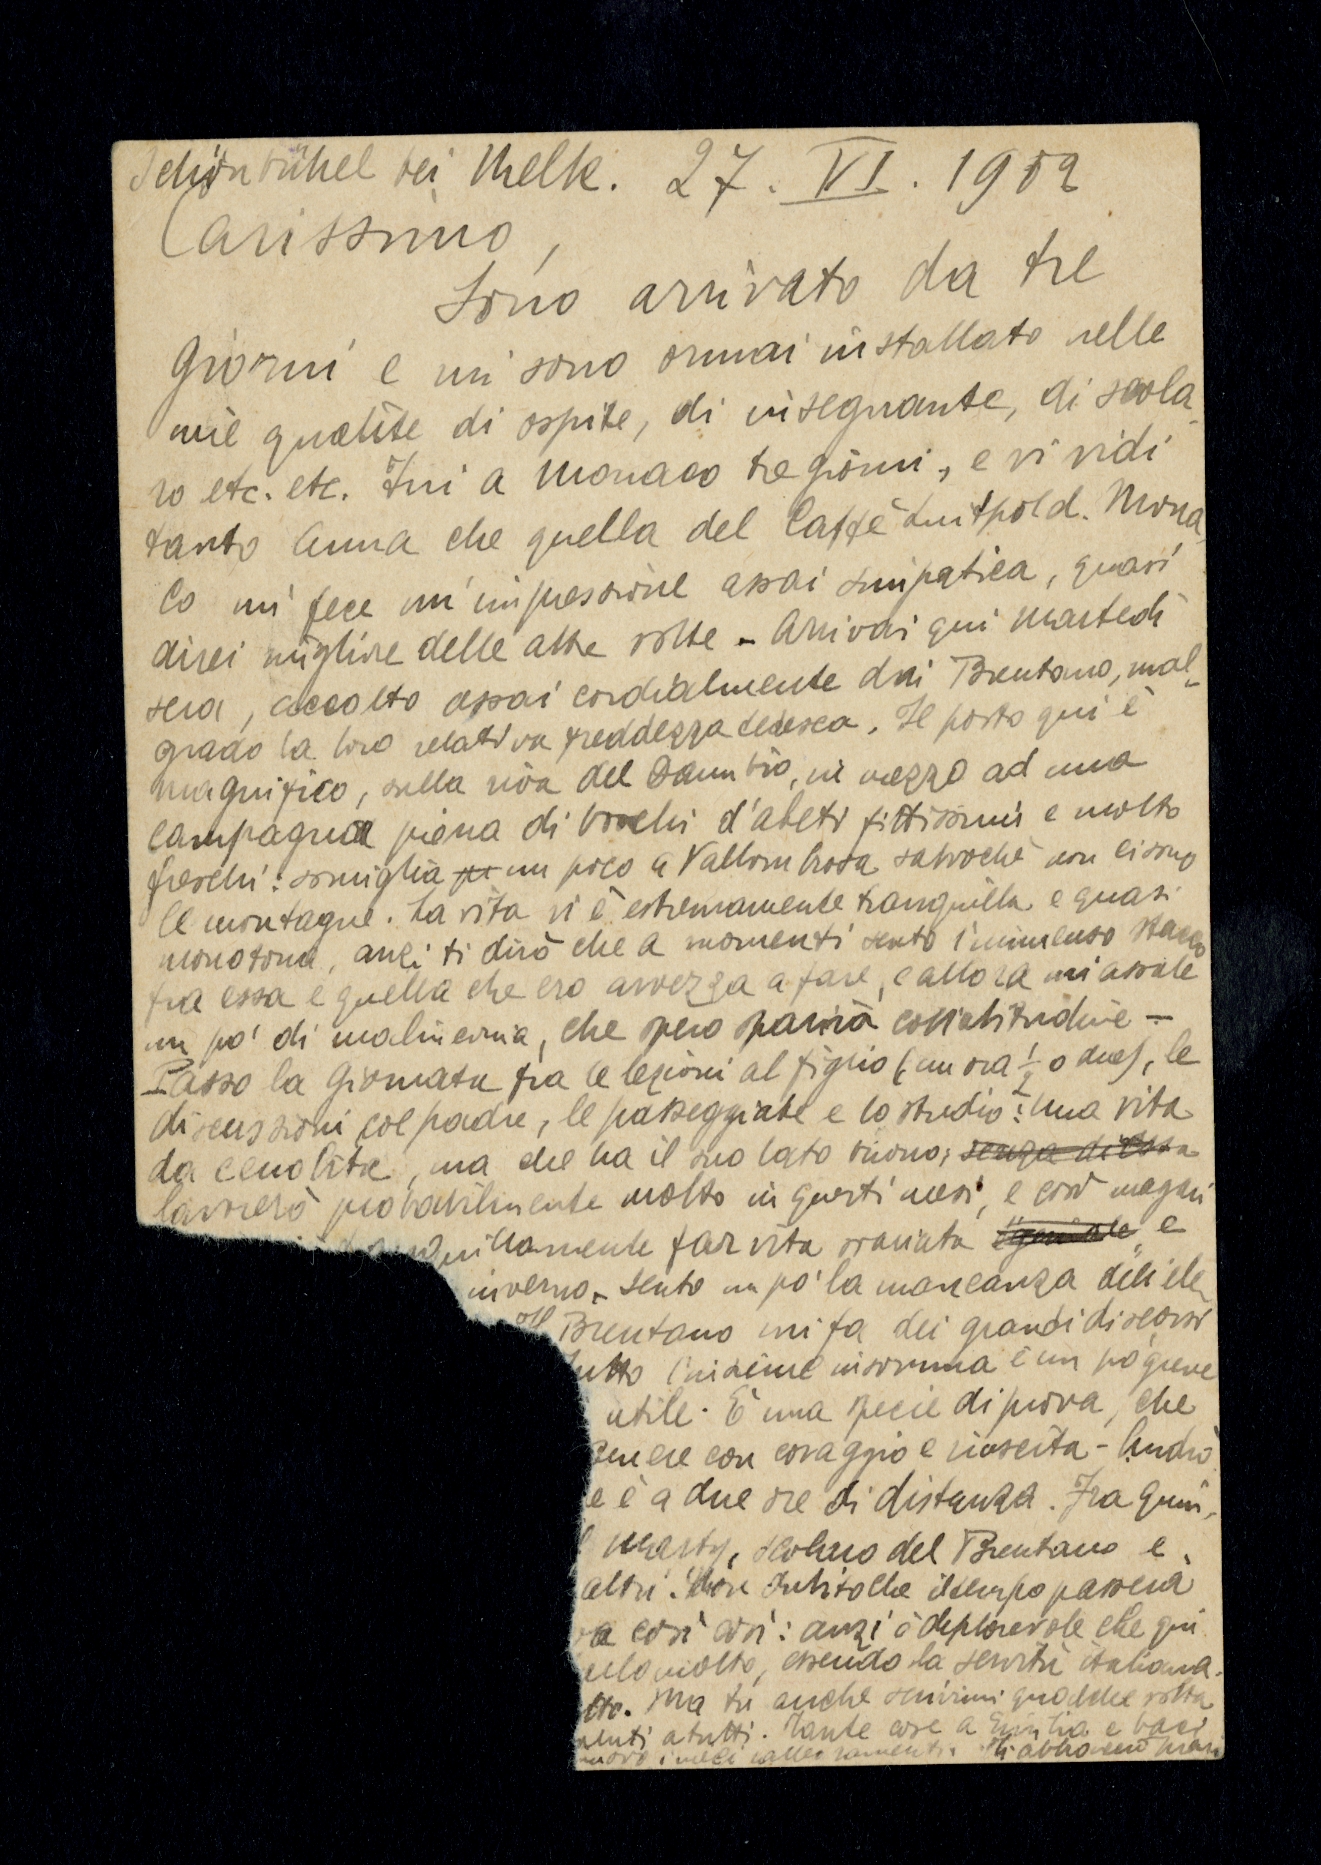 Schönbühel bei Melk. 27. VI. 1902
Carissimo,
Sono arrivato da tre
giorni e mi sono ormai installato nelle
mie qualità di ospite, di insegnante, di scola-
ro etc. etc. Fui a Monaco tre giorni, e vi vidi
tanto Anna che quella del Caffè Luitpold. Mona-
co mi fece un'impressione assai simpatica, quasi
direi migliore delle altre volte - Arrivai qui Martedì
sera, accolto assai cordialmente dai Brentano, mal-
grado la loro relativa freddezza tedesca. Il posto qui è
magnifico, sulla riva del Danubio, in mezzo ad una
campagna piena di boschi d'abeti fittissimi e molto
freschi: somiglia un poco a Vallombrosa salvochè non ci sono
le montagne. La vita vi è estremamente tranquilla e quasi
monotona, anzi ti dirò che a momenti sento l'immenso stacco
fra essa e quella che ero avvezza a fare, e allora mi assale
un po' di malinconia, che spero sparirà coll'abitudine -
Passo la giornata fra le lezioni al figlio (un ora ½ o due), le
discussioni col padre, le passeggiate e lo studio: una vita
da cenobita, ma che ha il suo lato buono; senza di essa
lavorerò probabilmente molto in questi mesi, e così magari
tranquillamente far vita svariata e
inverno. Sento un po' la mancanza dell'ele
Il Brentano mi fa dei grandi discorsi
tutto l'insieme insomma è un po' greve
utile. È una specie di prova, che
tenere con coraggio e riuscita - Andrò
e è a due ore di distanza. Fra quin-
Marty, scolaro del Brentano e
altri. Non dubito che il tempo passerà
va così così: anzi è deplorevole che qui
molto, essendo la servitù italiana.
tto. Ma tu anche scrivimi qualche volta
menti a tutti. Tante cose a Emilia e baci
nuovo i miei rallegramenti. Ti abbraccio